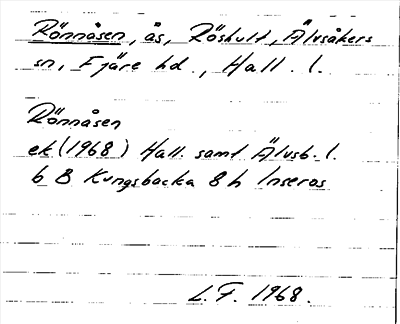 Rönnåsen, ås, Röshult, Älvsåkers
sn, Fjäre hd., Hall. l.
Rönnåsen
ek (1968) Hall. samt Älvsb. l.
6 B Kungsbacka 8 h Inseros
L. F. 1968.